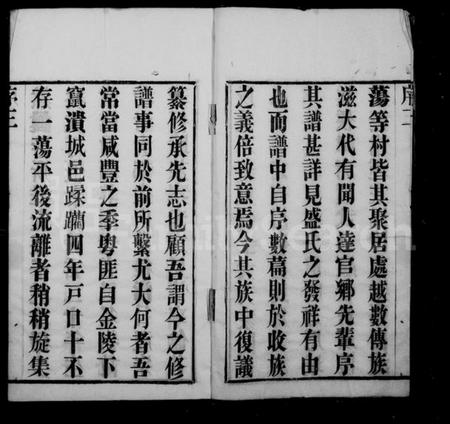 序二
蕩等村皆其聚居處越數傳族
滋大代有聞人達官鄉先輩序
其譜甚詳見盛氏之發祥有由
也而譜中自序數篇則於收族
之義倍致意焉今其族中復議
纂修承先志也顧吾謂今之修
譜事同於前所繫尤大何者吾
常當咸豐之季粵匪自金陵下
竄潰城邑蹂躪四年戶口十不
存一蕩平後流離者稍稍旋集
序三